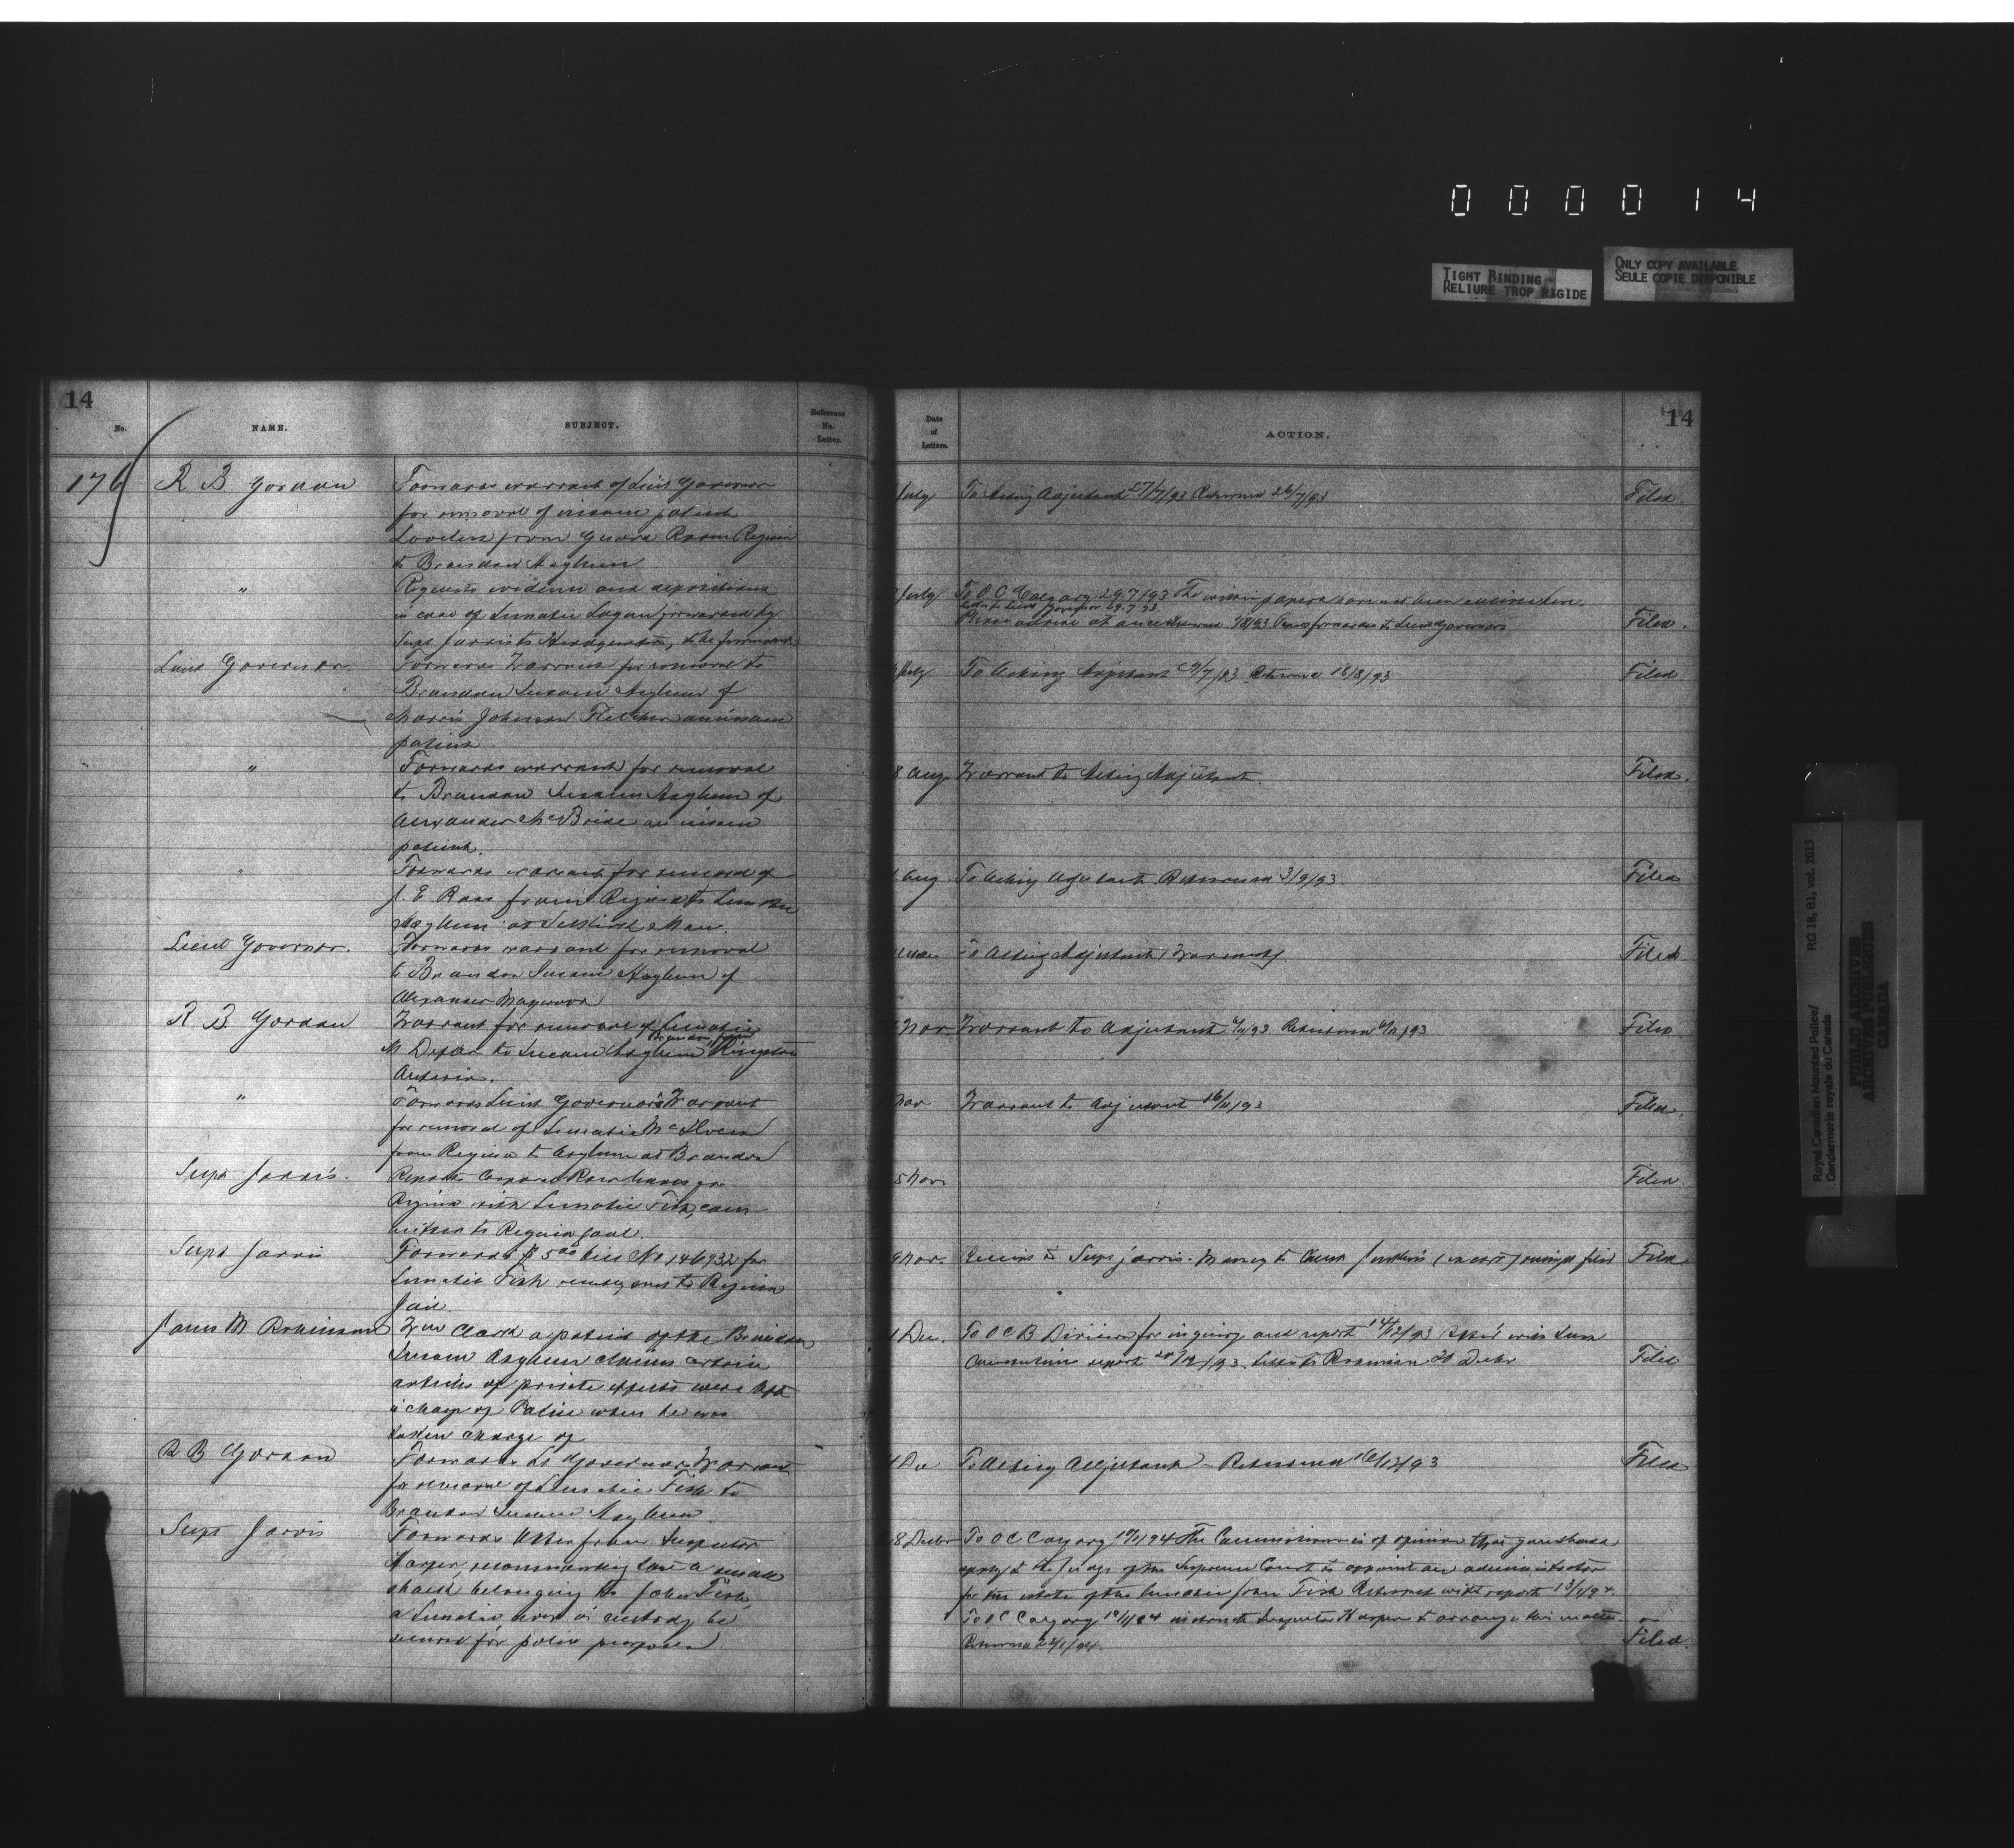 0 0 0 0 1 4
TIGHT BINDING
RELIURE TROP RIGIDE
ONLY COPY AVAILABLE
SEULE COPIE DISPONIBLE
14
No.
NAME.
SUBJECT.
Reference
No.
Letter.
176
R B Gordon
Forwards warrant of Lieut Governor
for removal of insane patient
from Guard Room Regina
to Brandon Asylum
"
Requests evidence and depositions
in case of Lunatic Logan forwarded by
Supt Jarvis to Headquarters, to be forwarded
Lieut Governor
Forwards Warrant for removal to
Brandon Insane Asylum of
Morris Johnson Fletcher an insane
patient.
"
Forwards warrant for removal
to Brandon Insane Asylum of
Alexander McBride an insane
patient.
"
Forwards warrant for removal of
J. E Ross from Regina to Lunatic
Asylum at Selkirk Man.
Lieut Governor.
Forwards warrant for removal
to Brandon Insane Asylum of
Alexander
R B. Gordon
Warrant for removal of Lunatic
Brandon
M to Insane Asylum Kingston
Ontario.
"
Forwards Lieut Governor's Warrant
for removal of Lunatic
from Regina to Asylum at Brandon
Supt Jarvis.
Reports Corporal
Regina with Lunatic Fish,
to Regina gaol.
Supt Jarvis
Forwards $5.00 bill No 146932 for
Lunatic Fish recently sent to Regina
Jail.
James M Robinson
Wm Clark a patient of the Brandon
Insane Asylum claims certain
articles of private effects were left
in charge of Police when he was
taken charge of
R B Gordon
Forwards Lt Governor Warrant
for removal of Lunatic Fish to
Brandon Insane Asylum.
Supt Jarvis
Forwards letter from Inspector
Harper, recommending that a small
shack belonging to John Fish,
a Lunatic now in custody be
secured for police purposes.
Date
of
Letters.
ACTION.
14
July
To Acting Adjutant 27/7/93 Returned 26/7/93
Filed.
July
To O C Calgary 29.7/93 The within papers have not been
Letter to Lieut Governor 29.7.93.
Please advise at once Returned /8/93 forwarded to Lieut Governor
Filed.
July
To Acting Adjutant 29/7/93 Returned 18/8/93
Filed.
8 Aug.
Warrant to Acting Adjutant
Filed.
Aug
To Acting Adjutant Returned 3/9/93.
Filed
To Acting Adjutant (Warrant).
Filed
Nov
Warrant to Adjutant 6/11/93. Returned
Filed
Nov
Warrant to Adjutant 16/11/93
Filed.
5 Nov
Filed
9 Nov.
Receipt to Supt Jarvis. Money to receipt filed
Filed
1 Dec.
To O C B Division for inquiry and report 14/12/93
report Letter to Robinson 20 Decbr
Filed
Dec
To Acting Adjutant - Returned 16/12/93
Filed
8 Decbr
To O C Calgary 10/1/94 The Commissioner is of opinion that you should
apply to the Judge of the Supreme Court to appoint an administrator
for the estate of the lunatic John Fish Returned with report 13/1/94.
To O C Calgary instruct Inspector Harper to arrange this matter
Returned 22/1/94.
Filed.
Royal Canadian Mounted Police/
Gendarmerie royale du Canada
RG 18, B1, vol. 2013
PUBLIC ARCHIVES
ARCHIVES PUBLIQUES
CANADA